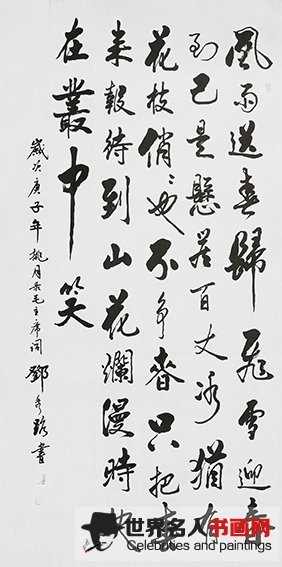 風雨送春歸飛雪迎春
到已是懸崖百丈冰猶有
花枝俏々也不争春只把春
来報待到山花爛漫時她
在叢中笑
歲次庚子年桃月录毛主席词 鄧書
世界名人书画网
Celebrities and paintings